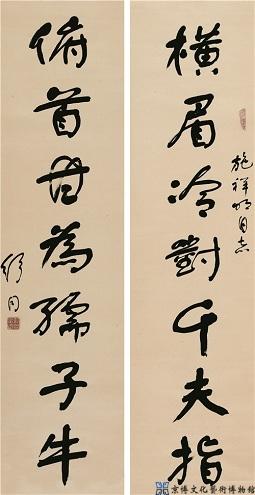 橫眉冷對千夫指
施祥明同志
俯首甘為孺子牛
舒同
京博文化藝術博物館